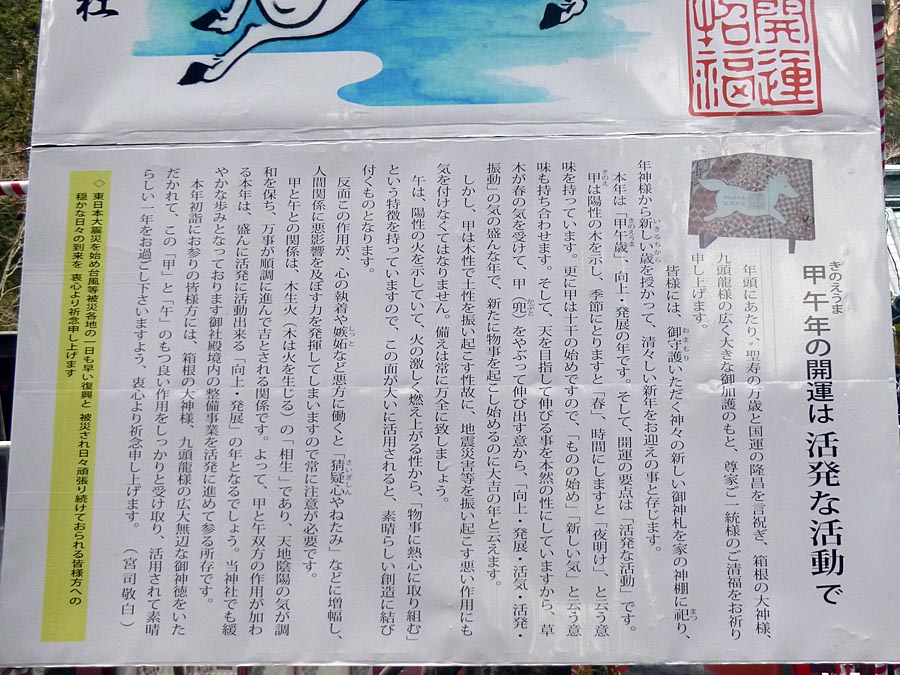 社
開運
招福
甲午年の開運は活発な活動で
きのえうま
年頭にあたり、聖寿の万歳と国運の隆昌を言祝ぎ、箱根の大神様、
九頭龍様の広く大きな御加護のもと、尊家ご一統様のご清福をお祈り
申し上げます。
皆様には、御守護いただく神々の新しい御神札を家の神棚に祀り、
おまもり
まつ
年神様から新しい歳を授かって、清々しい新年をお迎えの事と存じます。
いきるちから
本年は「甲午歳」、向上・発展の年です。そして、開運の要点は「活発な活動」です。
きのえうま
甲は陽性の木を示し、季節にとりますと「春」、時間にしますと「夜明け」、と云う意
きのえ
味を持っています。更に甲は十干の始めですので、「ものの始め」「新しい気」と云う意
味も持ち合わせます。そして、天を目指して伸びる事を本然の性にしていますから、草
木が春の気を受けて、甲（兜）をやぶって伸び出す意から、「向上・発展・活気・活発・
かぶと
振動」の気の盛んな年で、新たに物事を起こし始めるのに大吉の年と云えます。
しかし、甲は木性で土性を振い起こす性故に、地震災害等を振い起こす悪い作用にも
気を付けなくてはなりません。備えは常に万全に致しましょう。
午は、陽性の火を示していて、火の激しく燃え上がる性から、「物事に熱心に取り組む」
という特徴を持っていますので、この面が大いに活用されると、素晴らしい創造に結び
付くものとなります。
反面この作用が、心の執着や嫉妬など悪方に働くと「猜疑心やねたみ」などに増幅し、
しっと
さいぎしん
人間関係に悪影響を及ぼす力を発揮してしまいますので常に注意が必要です。
甲と午との関係は、木生火（木は火を生じる）の「相生」であり、天地陰陽の気が調
和を保ち、万事が順調に進んで吉とされる関係です。よって、甲と午双方の作用が加わ
る本年は、盛んに活発に活動出来る「向上・発展」の年となるでしょう。当神社でも緩
やかな歩みとなっております御社殿境内の整備事業を活発に進めて参る所存です。
本年初詣にお参りの皆様方には、箱根の大神様、九頭龍様の広大無辺な御神徳をいた
だかれて、この「甲」と「午」のもつ良い作用をしっかりと受け取り、活用されて素晴
らしい一年をお過ごし下さいますよう、衷心より祈念申し上げます。
（宮司敬白）
◇ 東日本大震災を始め台風等被災各地の一日も早い復興と 被災され日々頑張り続けておられる皆様方への
穏かな日々の到来を 衷心より祈念申し上げます